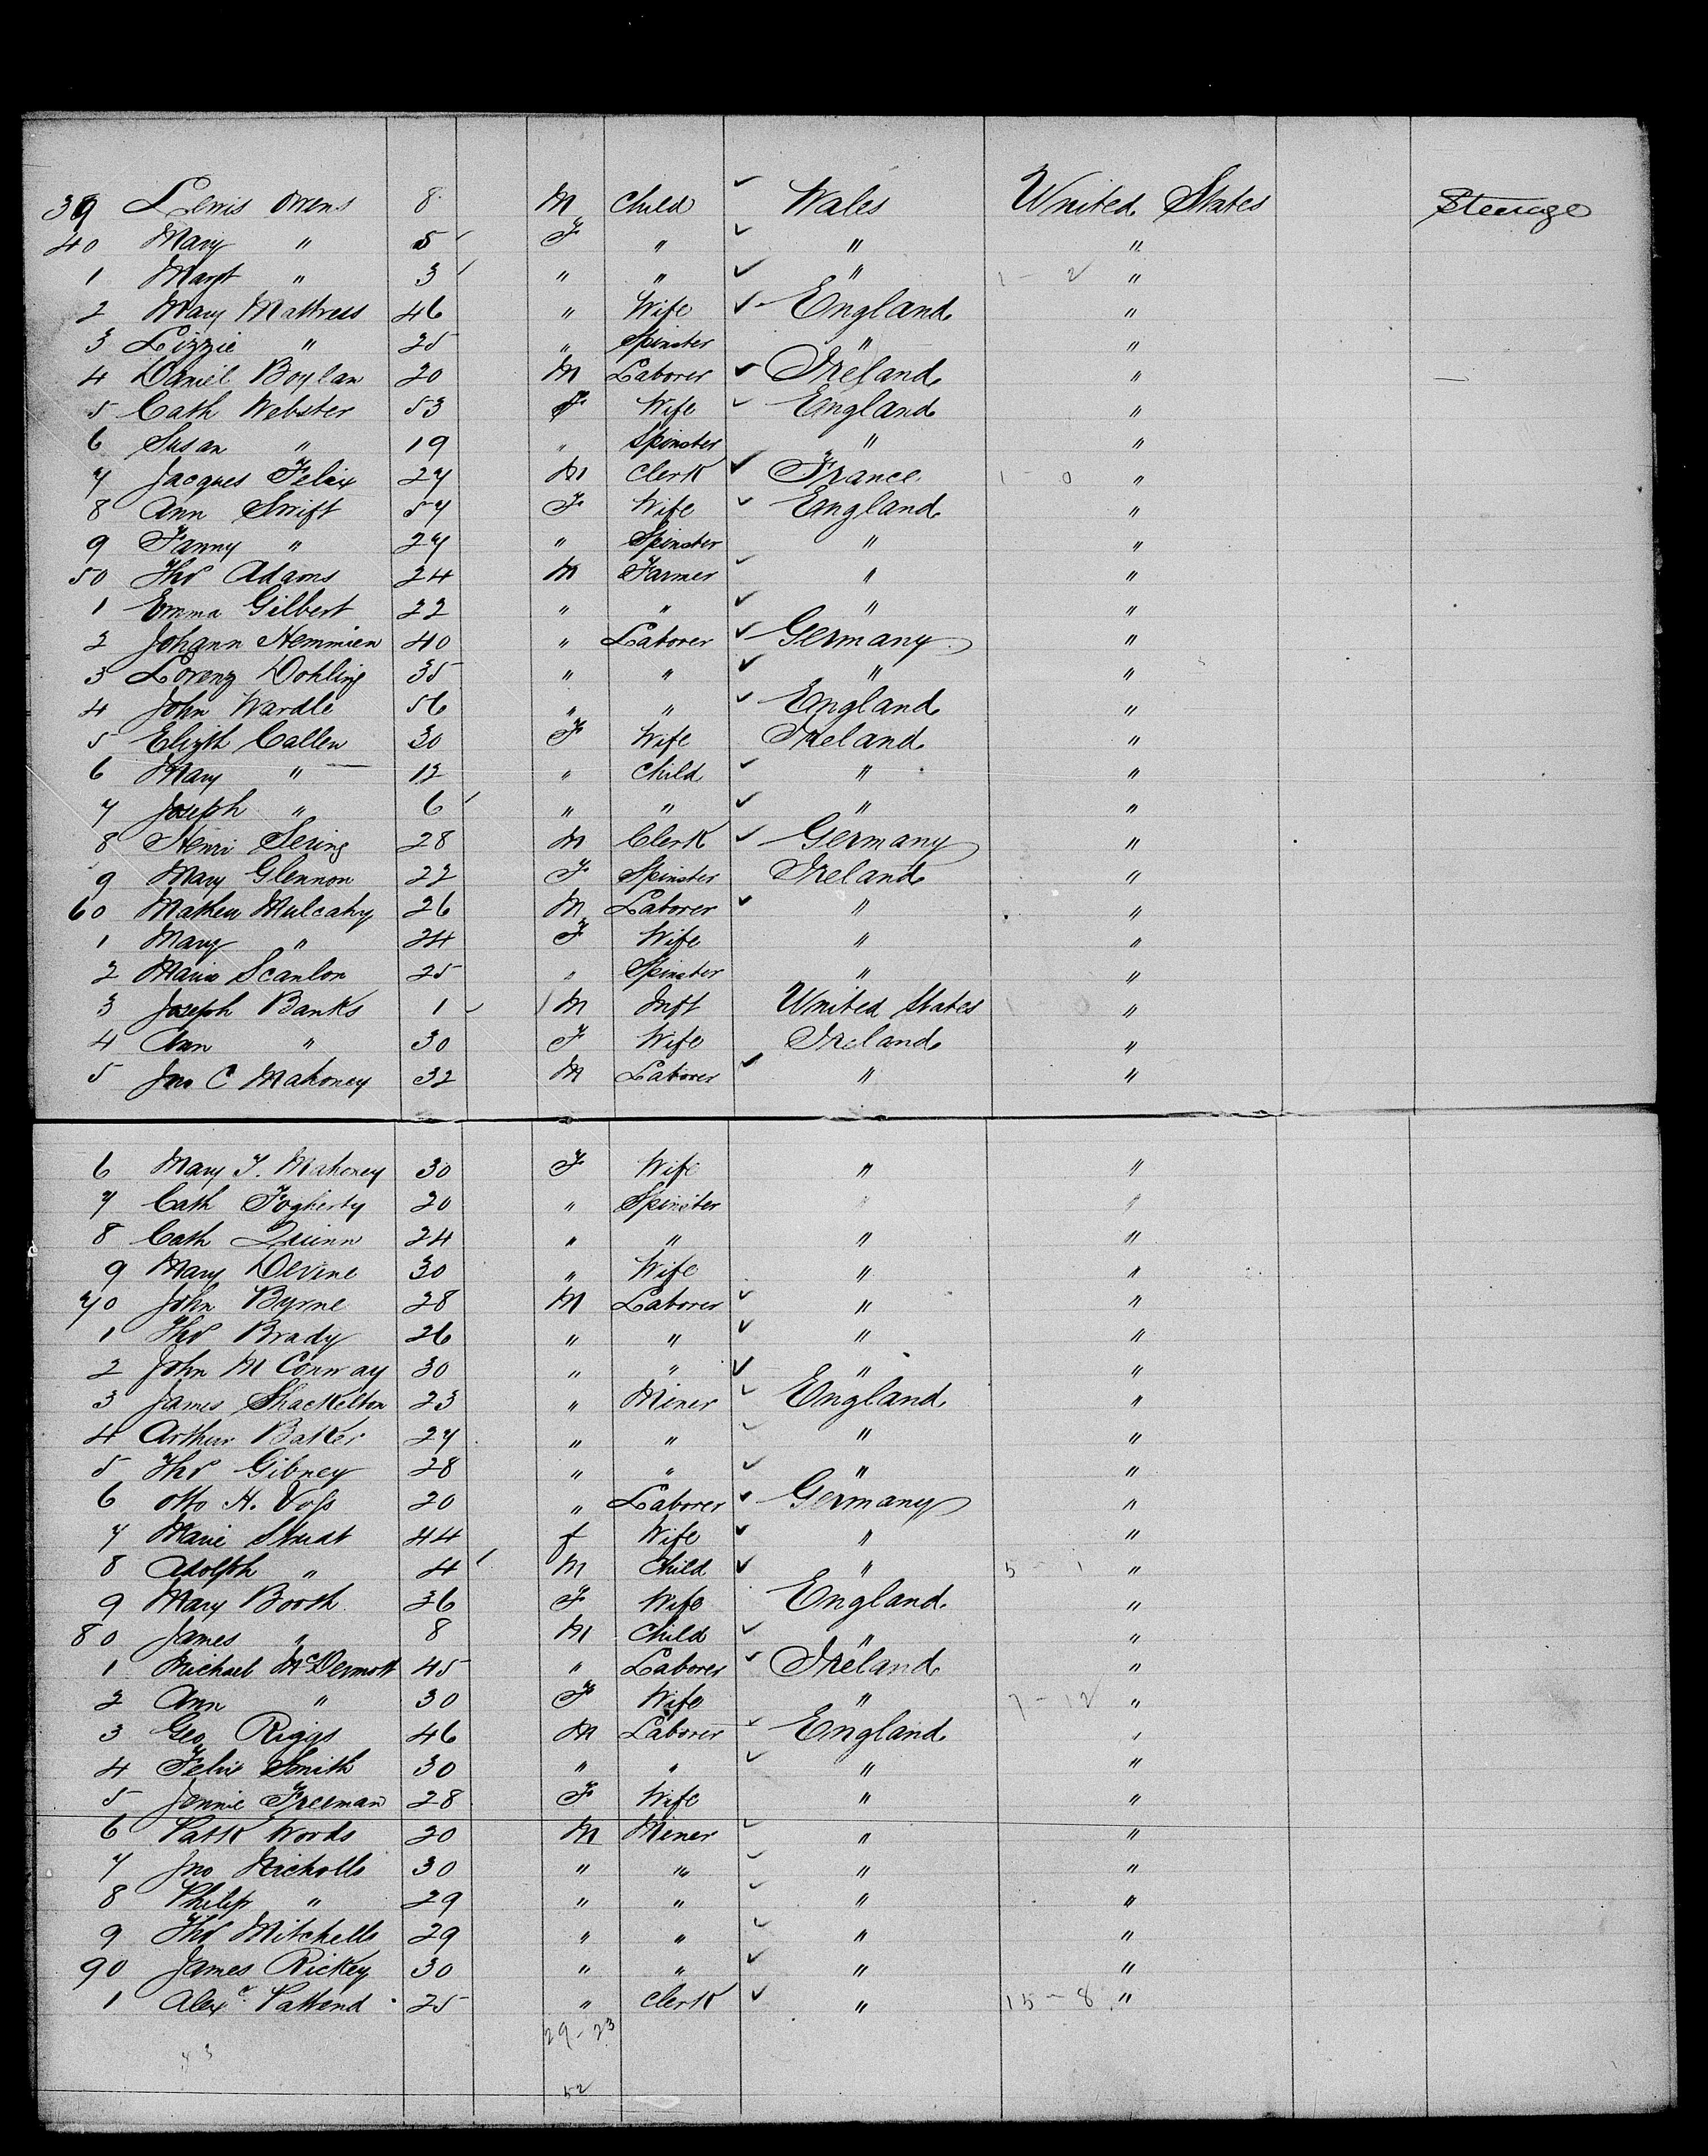 39 Lewis Owens 8 M Child Wales United States Steerage
40 Mary " 5 F " " "
1 Margt " 3 " " " 1 - 2 "
2 Mary Mattress 46 " Wife England "
3 Lizzie " 25 " Spinster " "
4 Daniel Boylan 20 M Laborer Ireland "
5 Cath Webster 53 F Wife England "
6 Susan " 19 " Spinster " "
7 Jacques Felix 27 M Clerk France 1 - 0 "
8 Ann Swift 57 F Wife England "
9 Fanny " 27 " Spinster " "
50 Thos Adams 24 M Farmer " "
1 Emma Gilbert 22 " " " "
2 Johann Hemmien 40 " Laborer Germany "
3 Lorenz Dohling 35 " " " "
4 John Wardle 56 " " England "
5 Elizth Callen 30 F Wife Ireland "
6 Mary " 12 " Child " "
7 Joseph " 6 " " " "
8 Henri Sering 28 M Clerk Germany "
9 Mary Glennon 22 F Spinster Ireland "
60 Mathew Mulcahy 26 M Laborer " "
1 Mary " 24 F Wife " "
2 Maria Scanlon 25 " Spinster " "
3 Joseph Banks 1 M Inft United States 1 0 "
4 Ann " 30 F Wife Ireland "
5 Jno C Mahoney 32 M Laborer " "
6 Mary T. Mahoney 30 F Wife " "
7 Cath Fogherty 20 " Spinster " "
8 Cath Quinn 24 " " " "
9 Mary Devine 30 " Wife " "
70 John Byrne 28 M Laborer " "
1 Thos Brady 26 " " " "
2 John M Conway 30 " " " "
3 James Shackelton 23 " Miner England "
4 Arthur Baker 27 " " " "
5 Thos Gibney 28 " " " "
6 Otto H. Voss 20 " Laborer Germany "
7 Marie 44 f Wife " "
8 Adolph " 4 M Child " 5 - 1 "
9 Mary Booth 36 F Wife England "
80 James " 8 M Child " "
1 Michael McDermott 45 " Laborer Ireland "
2 Ann " 30 F Wife " 7 - 12 "
3 Geo Riggs 46 M Laborer England "
4 Felix Smith 30 " " " "
5 Jennie Freeman 28 F Wife " "
6 Patk Words 20 M Miner " "
7 Jno Nicholls 30 " " " "
8 Philip " 29 " " " "
9 Thos Mitchells 29 " " " "
90 James Rickey 30 " " " "
1 Alexr 25 " Clerk " 15 - 8 "
29 - 23
52